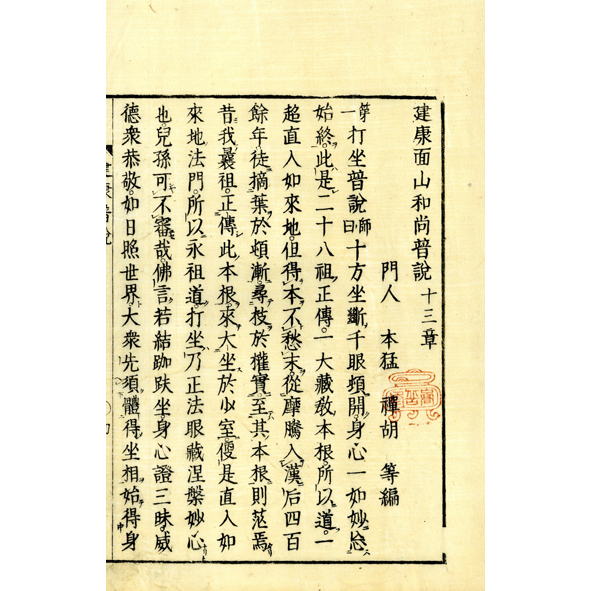 建康面山和尚普說 十三章
門人 本猛 禪胡 等編
第一 打坐普說 師曰 十方坐斷千眼頓開身心一如妙忩
始終此是二十八祖正傳一大藏敎本根所以道一
超直入如來地但得本不愁末從摩騰入漢后四百
餘年徒摘葉於頓漸尋枝於權實至其本根則茫焉
昔我曩祖正傳此本根來大坐於少室便是直入如
來地法門所以永祖道打坐乃正法眼藏涅槃妙心
也兒孫可不審哉佛言若結跏趺坐身心證三昧威
德衆恭敬如日照世界大衆先須體得坐相始得身
建康普說